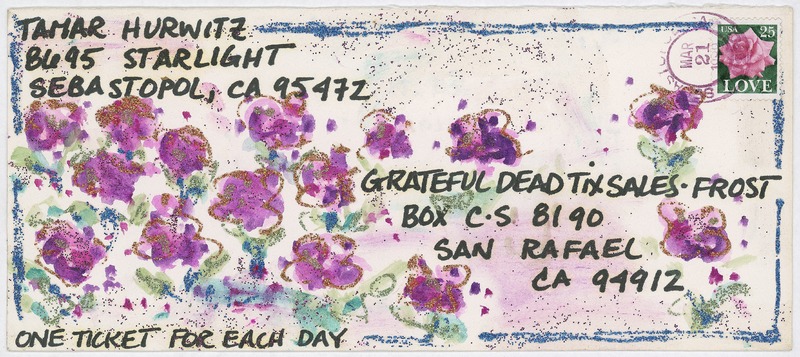 TAMAR HURWITZ
8695 STARLIGHT
SEBASTOPOL, CA 95472
MAR
21
USA 25
LOVE
GRATEFUL DEAD TIX SALES - FROST
BOX C-S 8190
SAN RAFAEL
CA 94912
ONE TICKET FOR EACH DAY